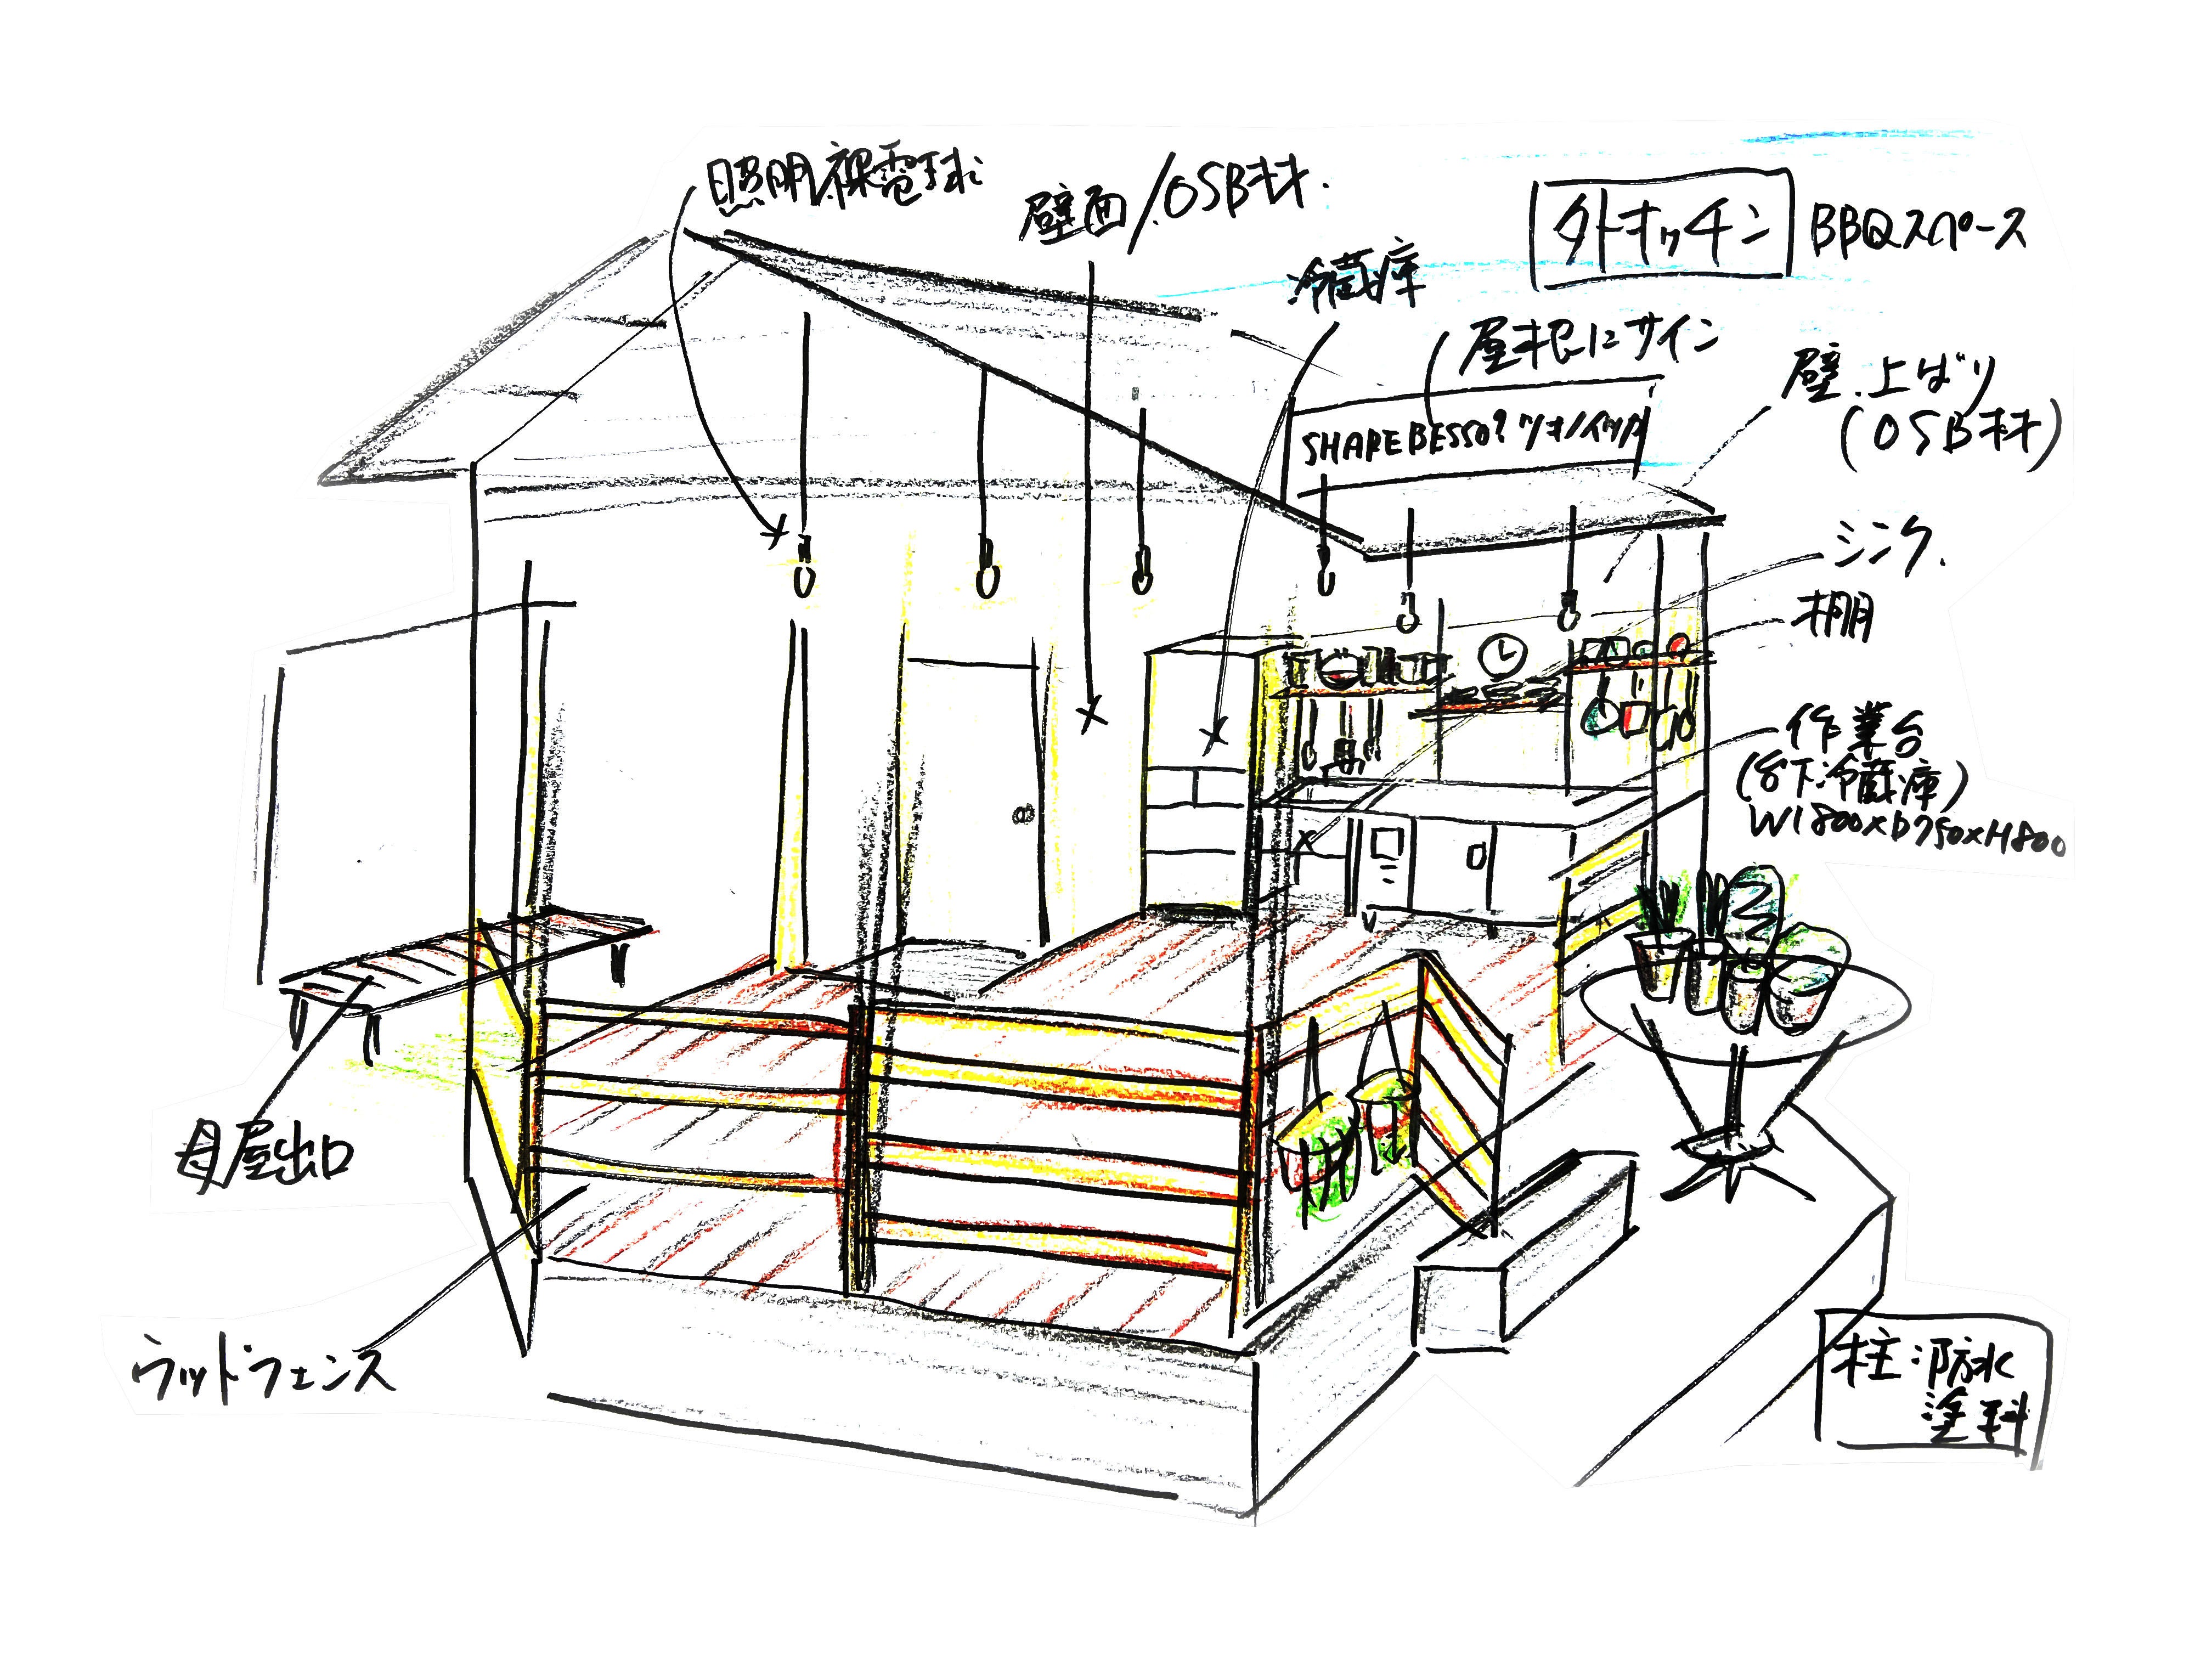 照明 裸電球
壁面/OSB材.
外キッチン
BBQスペース
冷蔵庫
屋根にサイン
SHARE BESSO?
壁.上ばり
(OSB材)
シンク.
棚
作業台
(台下冷蔵庫)
W1800×D750×H800
母屋出口
ウッドフェンス
柱:防水
塗料